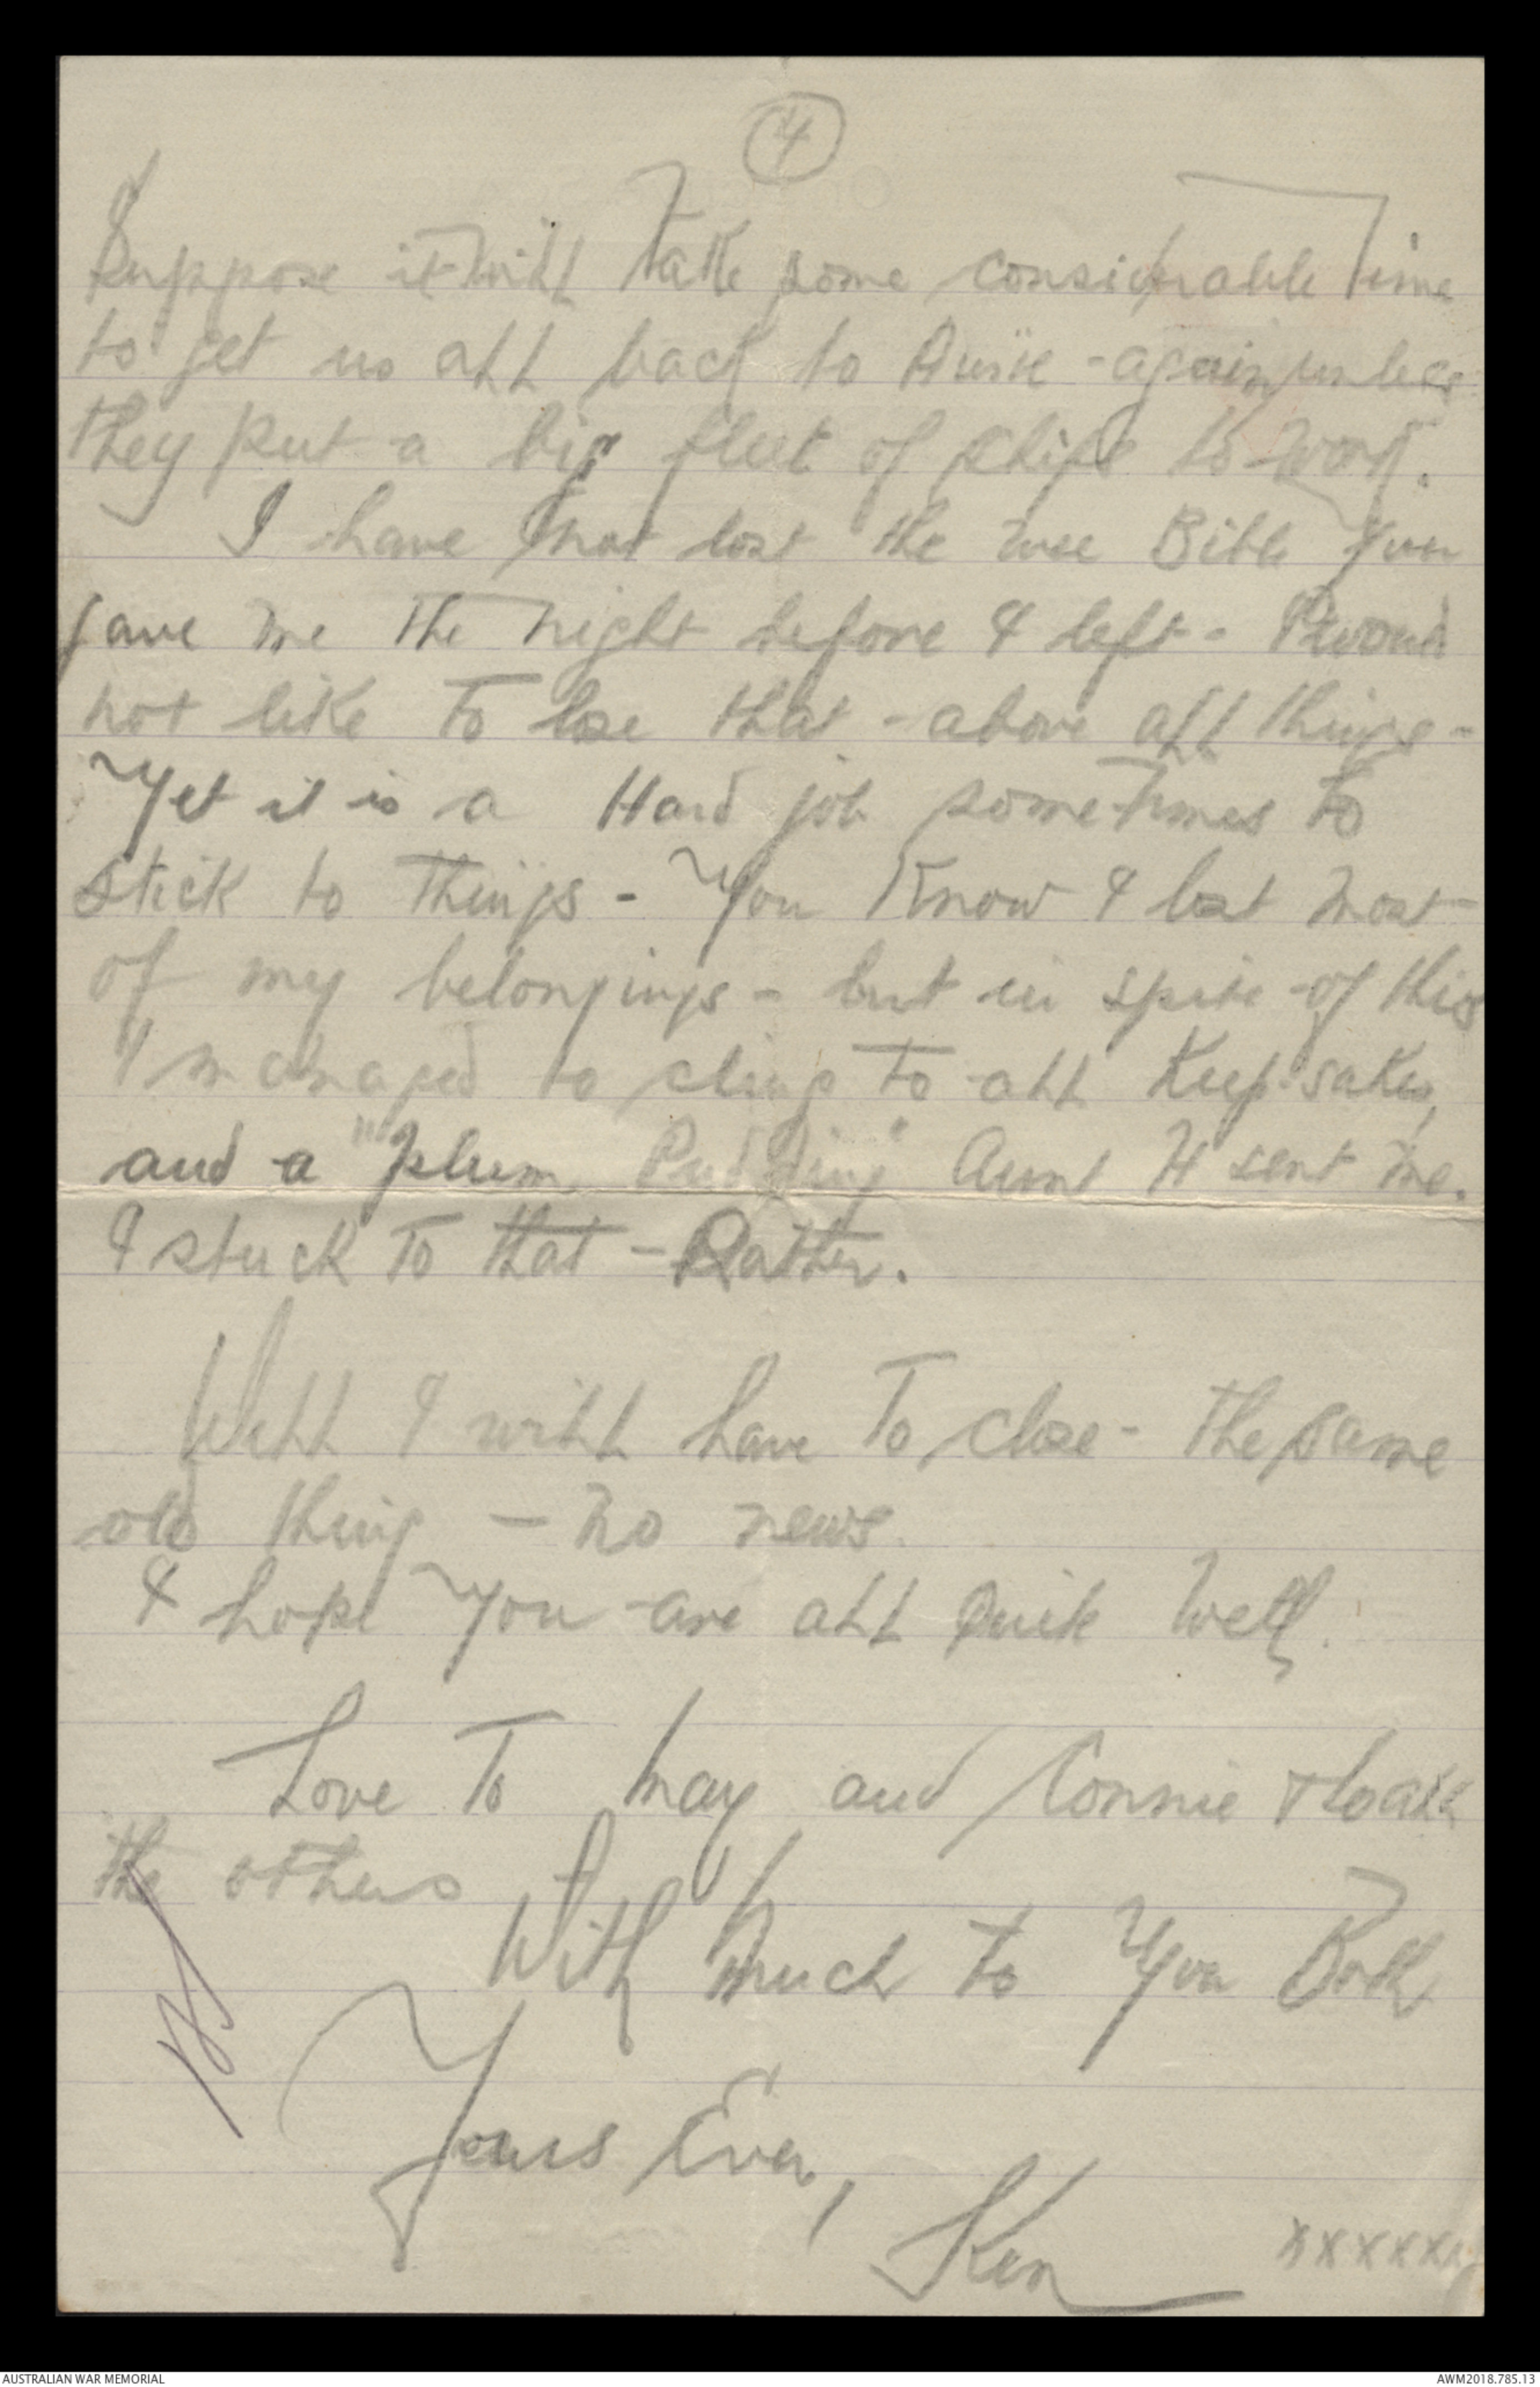 4
Suppose it will take some considerable Time
to get us all back to Aussie - again, unless
they put a big fleet of ships to work.
I have not lost the wee Bible you
gave me the night before I left - I would
not like To lose that - above all things -
Yet it is a Hard job sometimes to
stick to things - You Know I lost most
of my belongings - but in spite of this
I managed to cling to all Keepsakes,
and a "plum Pudding" Aunt H sent me.
I stuck To that - Rather.
Well I will have To close - the same
old thing - no news.
I hope You are all Quite Well.
Love To May and Connie & to all
the others
With much to You Both
Yours Ever,
Ken xxxxxx
AUSTRALIAN WAR MEMORIAL
AWM2018.785.13